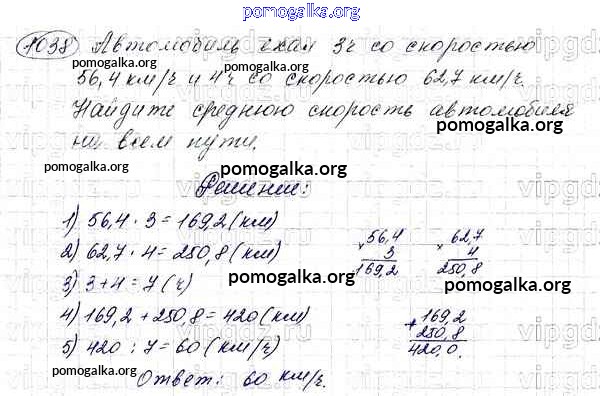 pomogalka.org
1038 Автомобиль ехал 3ч со скоростью
56,4 км/ч и 4ч со скоростью 62,7 км/ч.
pomogalka.org
Найдите среднюю скорость автомобиля
pomogalka.org
на всем пути.
pomogalka.org
Решение:
pomogalka.org
1) 56,4 · 3 = 169,2 (км)
2) 62,7 · 4 = 250,8 (км)
56,4
× 3
169,2
62,7
× 4
250,8
3) 3 + 4 = 7 (ч)
pomogalka.org
4) 169,2 + 250,8 = 420 (км)
5) 420 : 7 = 60 (км/ч)
169,2
+ 250,8
420,0.
pomogalka.org
pomogalka.org
Ответ: 60 км/ч.